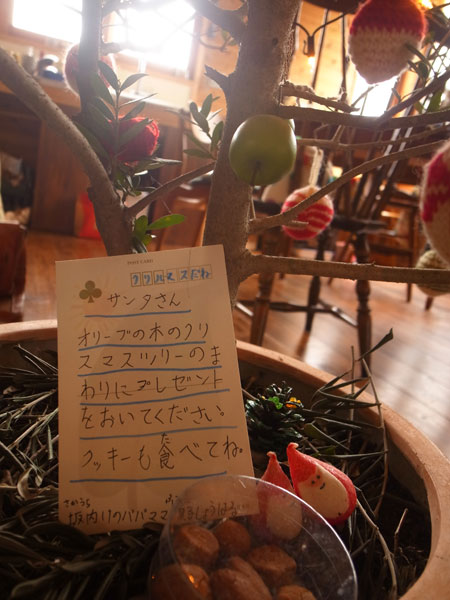 POST CARD
クリスマスだね
サンタさん
オリーブの木のクリ
スマスツリーのま
わりにプレゼント
をおいてください
クッキーも食べてね。
た
さかうち
坂内けのパパママ